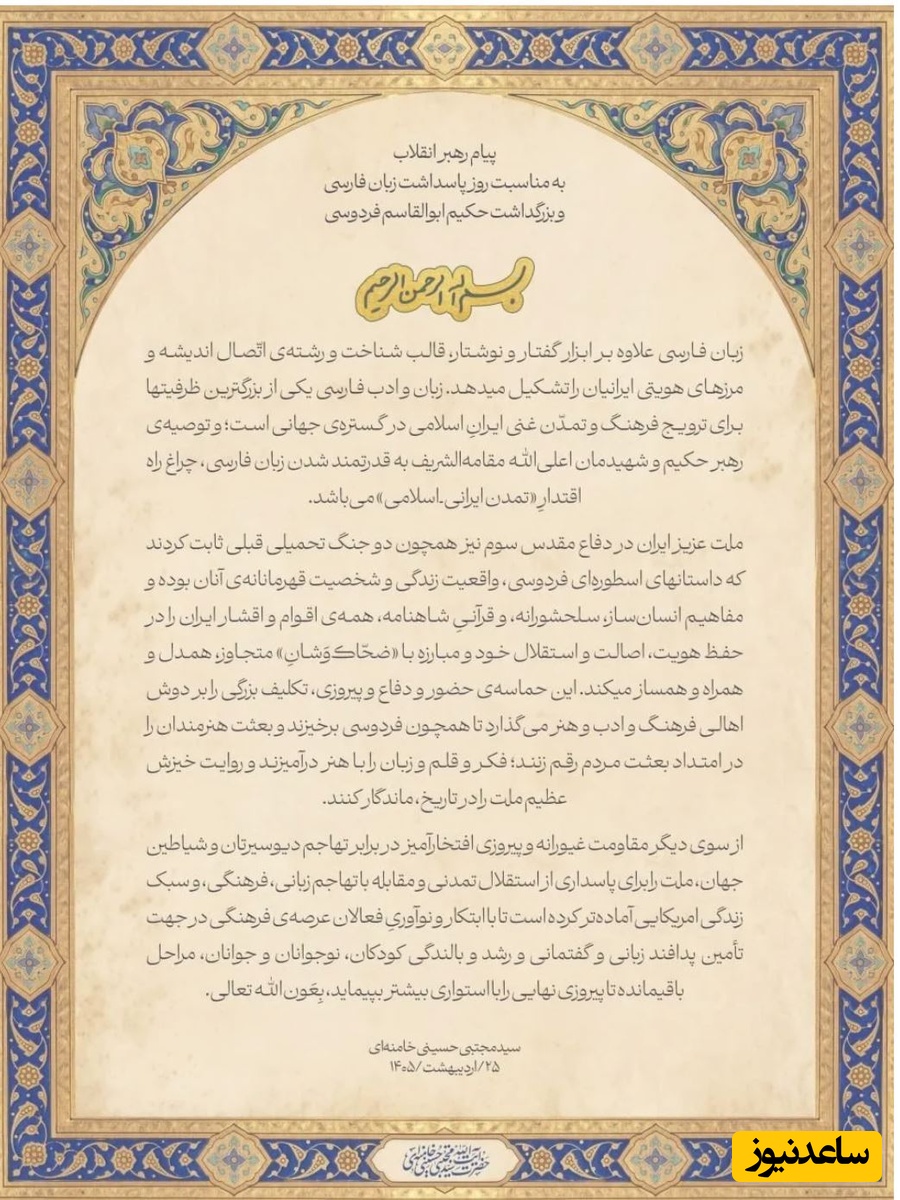 پیام رهبر انقلاب
به مناسبت روز پاسداشت زبان فارسی
و بزرگداشت حکیم ابوالقاسم فردوسی
بسم الله الرحمن الرحیم
زبان فارسی علاوه بر ابزار گفتار و نوشتار، قالب شناخت و رشته‌ی اتّصال اندیشه و
مرزهای هویتی ایرانیان را تشکیل میدهد. زبان و ادب فارسی یکی از بزرگترین ظرفیتها
برای ترویج فرهنگ و تمدّن غنی ایرانِ اسلامی در گستره‌ی جهانی است؛ و توصیه‌ی
رهبر حکیم و شهیدمان اعلی‌الله مقامه‌الشریف به قدرتمند شدن زبان فارسی، چراغ راه
اقتدارِ «تمدن ایرانی-اسلامی» می‌باشد.
ملت عزیز ایران در دفاع مقدس سوم نیز همچون دو جنگ تحمیلی قبلی ثابت کردند
که داستانهای اسطوره‌ای فردوسی، واقعیت زندگی و شخصیت قهرمانانه‌ی آنان بوده و
مفاهیم انسان‌ساز، سلحشورانه، و قرآنیِ شاهنامه، همه‌ی اقوام و اقشار ایران را در
حفظ هویت، اصالت و استقلال خود و مبارزه با «ضحّاک‌وَشانِ» متجاوز، همدل و
همراه و همساز میکند. این حماسه‌ی حضور و دفاع و پیروزی، تکلیف بزرگی را بر دوش
اهالی فرهنگ و ادب و هنر می‌گذارد تا همچون فردوسی برخیزند و بعثت هنرمندان را
در امتداد بعثت مردم رقم زنند؛ فکر و قلم و زبان را با هنر درآمیزند و روایت خیزش
عظیم ملت را در تاریخ، ماندگار کنند.
از سوی دیگر مقاومت غیورانه و پیروزی افتخارآمیز در برابر تهاجم دیوسیرتان و شیاطین
جهان، ملت را برای پاسداری از استقلال تمدنی و مقابله با تهاجم زبانی، فرهنگی، و سبک
زندگی امریکایی آماده‌تر کرده است تا با ابتکار و نوآوریِ فعالان عرصه‌ی فرهنگی در جهت
تأمین پدافند زبانی و گفتمانی و رشد و بالندگی کودکان، نوجوانان و جوانان، مراحل
باقیمانده تا پیروزی نهایی را با استواری بیشتر بپیماید، بِعَون الله تعالی.
سیدمجتبی حسینی خامنه‌ای
۲۵/اردیبهشت/۱۴۰۵
ساعدنیوز